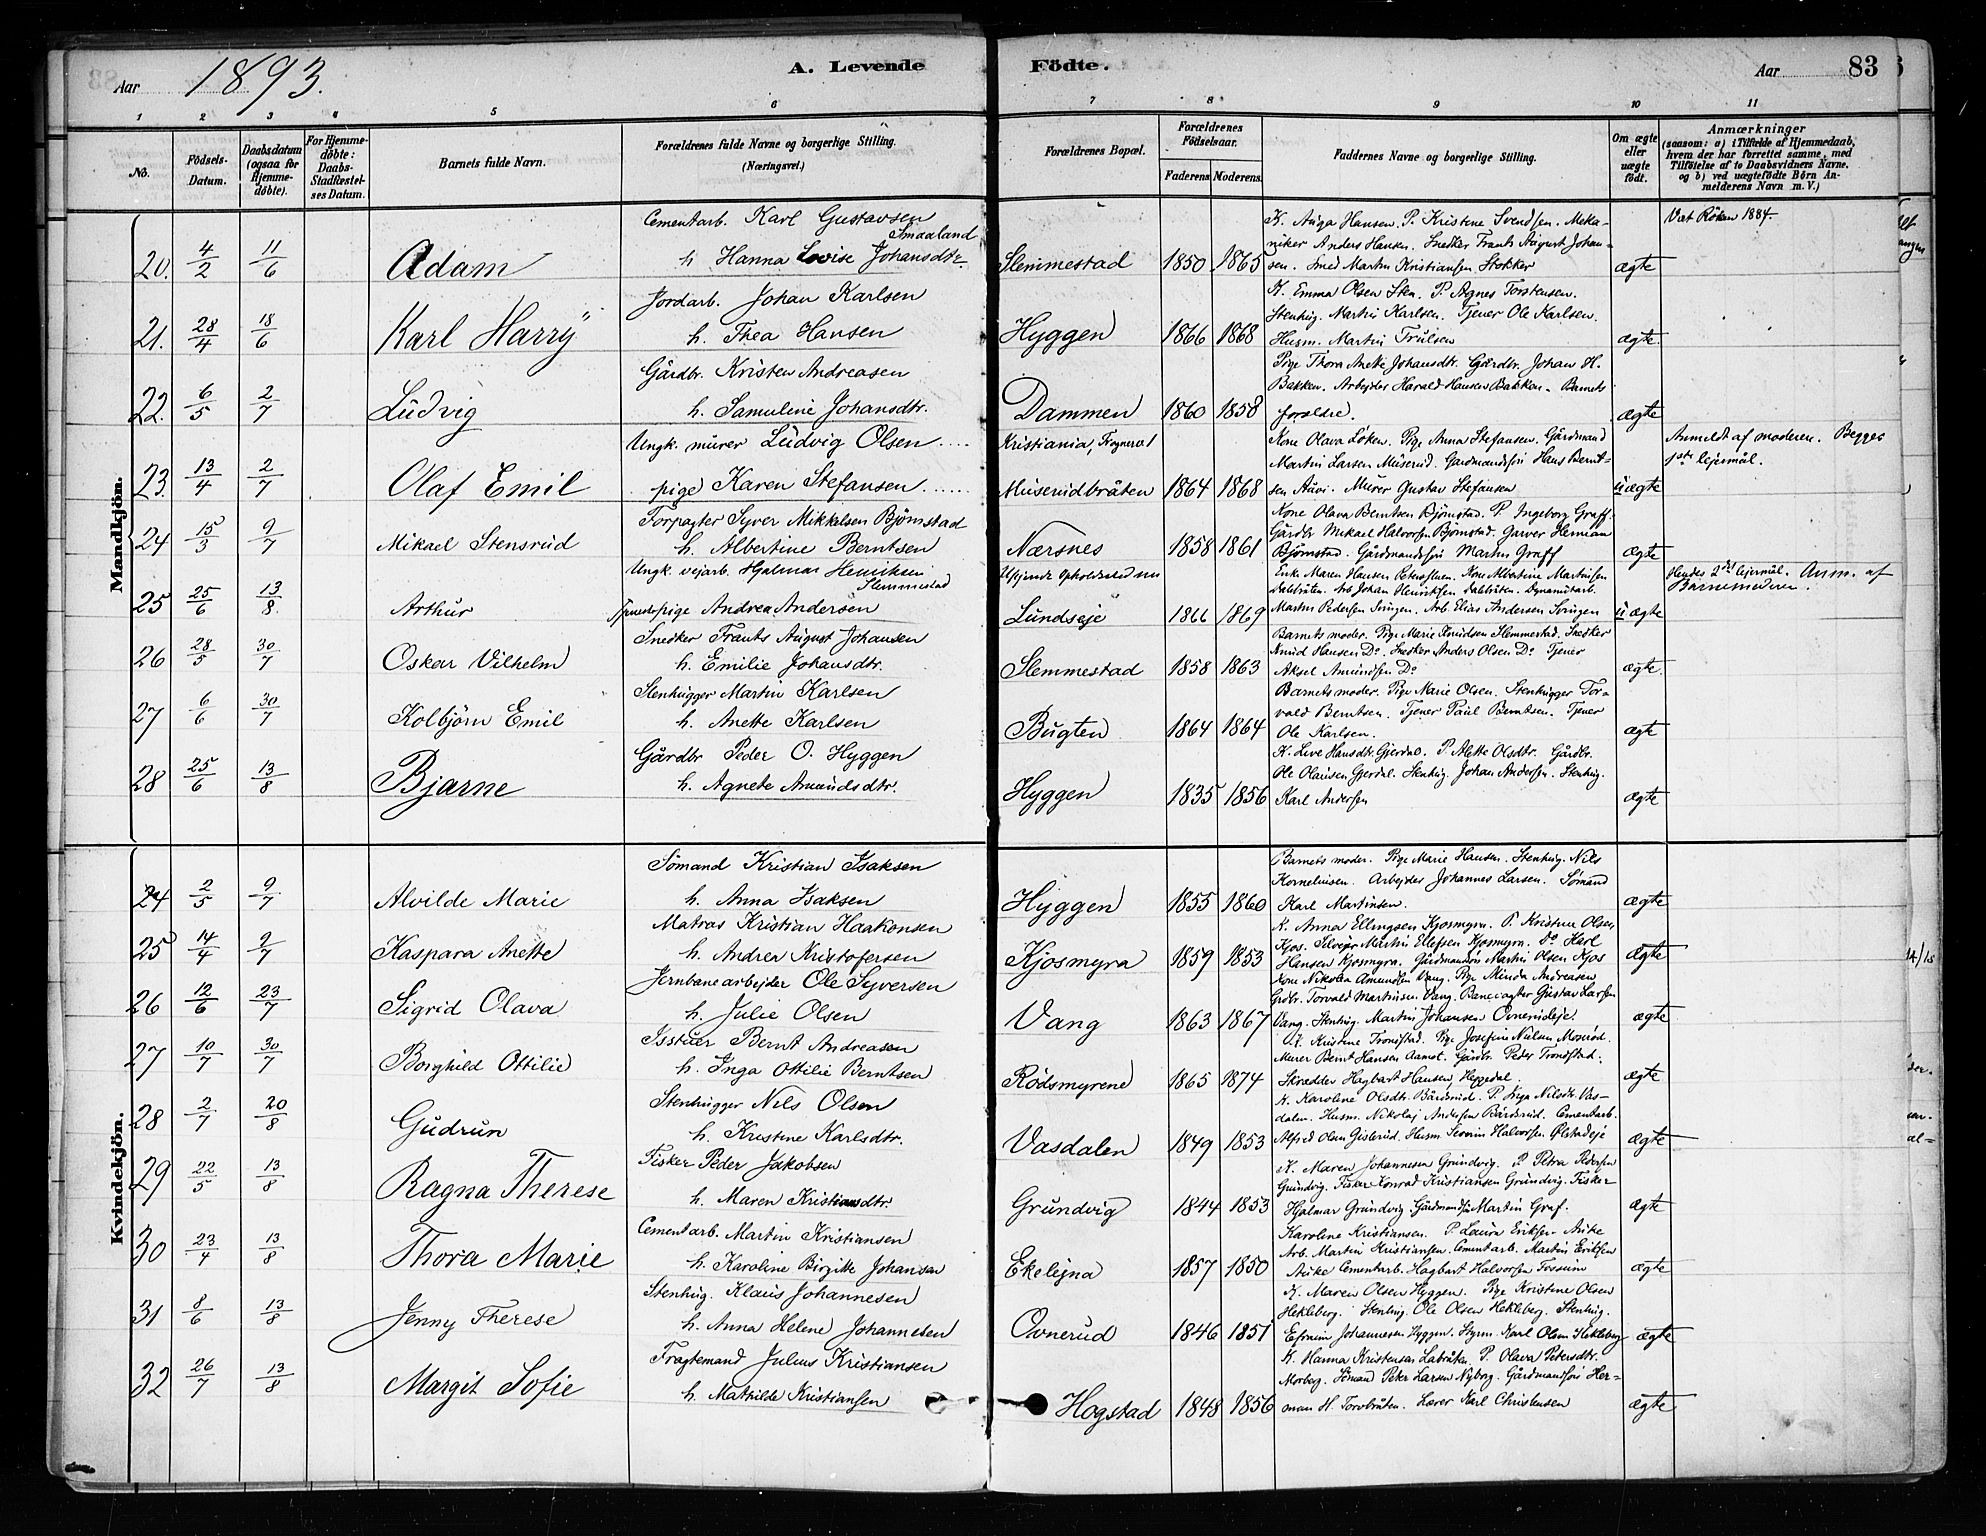 Aar 1893.
A. Levende Födte.
Aar 83
1 2 3 4 5 6 7 8 9 10 11
No.
Födsels-Datum.
Daabsdatum (ogsaa for Hjemmedöbte).
For Hjemmedöbte: Daabs-Stadfæstelses Datum.
Barnets fulde Navn.
Forældrenes fulde Navne og borgerlige Stilling. (Næringsvei.)
Forældrenes Bopæl.
Forældrenes Födselsaar.
Faderens. Moderens.
Faddernes Navne og borgerlige Stilling.
Om ægte eller uægte födt.
Anmærkninger
(saasom: a) i Tilfælde af Hjemmedaab,
hvem der har forrettet samme, med
Tilföielse af to Daabsvidners Navne.
og b) ved uægtefödte Börn An-
melderens Navn m. V.)
Mandkjön.
20. 4/2 11/6 Adam
Cementarb. Karl Gustavsen Smaaland
h. Hanna Lovise Johansdtr.
Slemmestad 1850 1865
K. Auga Hansen. P. Kristene Svendsen. Meka-
niker Anders Hansen. Snedker Frants August Johan-
sen. Smed Martin Kristiansen Stokker
ægte
Vat Röken 1884
21. 28/4 18/6 Karl Harry
Jordarb. Johan Karlsen
h. Thea Hansen
Hyggen 1866 1868
K. Emma Olsen Sten. P. Agnes Torstensen.
Stenhug. Martin Karlsen. Tjener Ole Karlsen.
Husm. Martin Trulsen
ægte
22. 6/5 2/7 Ludvig
Gårdbr. Kristen Andreasen
h. Samuline Johansdtr.
Dammen 1860 1858
Pige Thora Anette Johansdtr. Gårdbr. Johan H.
Bakken. Arbejder Harald Hansen Bakken. Barnets
forældre.
ægte
23. 13/4 2/7 Olaf Emil
Ungk. murer Ludvig Olsen
pige Karen Stefansen
Kristiania, Frogner
Muserudbråten 1864 1868
Kone Olava Löken. Pige Anna Stefansen. Gårdmand
Martin Larsen Muserud. Gardmandssön Hans Bernt-
sen Auvi. Murer Gustav Stefansen
uægte
Anmeldt af moderen. Begges
1ste lejermål.
24 15/3 9/7 Mikael Stensrud
Forpagter Syver Mikkelsen Björnstad
h. Albertine Berntsen
Nærsnes 1858 1861
Kone Olava Berntsen Björnstad. P. Ingeborg Graff.
Gårdbr Mikael Halvorsen Björnstad. Garver Herman
Björnstad. Gårdmandssön Martin Graff
ægte
25 25/6 13/8 Arthur
Ungk. vejarb. Hjalmar Henriksen Slemmestad
Tjenestepige Andrea Andersen
Lundseje 1866 1869
Enke Maren Hansen. Kone Albertine Martinsen
Dalbråten. Arb Johan Henriksen Dalbråten. Dynamitarb.
Martin Pedersen Svingen. Arb Elias Andersen Svingen
uægte
Hendes 2det lejermål. Anm. af
Barnemoderen.
26 28/5 30/7 Oskar Vilhelm
Snedker Frants August Johansen
h. Emilie Johansdtr.
Slemmestad 1858 1863
Barnets moder. Pige Marie Knudsen Slemmestad. Snedker
Knud Hansen Do. Snedker Anders Olsen Do. Tjener
Aksel Amundsen Do
ægte.
27 6/6 30/7 Kolbjörn Emil
Stenhugger Martin Karlsen
h. Anette Karlsen
Bugten 1864 1864
Barnets moder. Pige Marie Olsen. Stenhugger Tor-
vald Berntsen. Tjener Paul Berntsen. Tjener
Ole Karlsen.
ægte
28 25/6 13/8 Bjarne
Gårdbr Peder O. Hyggen
h. Agnete Amundsdtr.
Hyggen 1835 1856
K. Live Hansdtr. Gjerdal. P Alette Olsdtr. Gårdbr.
Ole Olausen Gjerdal. Stenhug. Johan Andersen. Stenhug.
Karl Andersen
ægte
Kvindekjön.
24 2/5 9/7 Alvilde Marie
Sömand Kristian Isaksen
h. Anna Isaksen
Hyggen 1855 1860
Barnets moder. Pige Marie Hansen. Stenhug. Nils
Korneliusen. Arbejder Johannes Larsen. Sömand
Karl Martinsen.
ægte
25 14/4 9/7 Kaspara Anette
Matros Kristian Haakonsen
h. Andrea Kristofersen
Kjosmyra 1859 1853
K. Anna Ellingsen Kjosmyra. P. Kristine Olsen
Kjos. Martin Ellefsen Kjosmyra. Do Karl
Hansen Kjosmyra. Gårdmandsön Martin Olsen Kjos
ægte
26 12/6 23/7 Sigrid Olava
Jernbanearbejder Ole Syversen
h. Julie Olsen
Vang 1863 1867
Kone Nikolea Amundsen Vang. Pige Minda Andreasen
Grdbr. Torvald Martinsen Vang. Banevagter Gustav Larsen
Vang. Stenhug. Martin Johansen Ovnerudeje.
ægte
27 10/7 30/7 Borghild Ottilie
Bernt Andreasen
h. Inga Ottilie Berntsen
Rödsmyrene 1865 1874
Kristine Tronstad. Pige Josefine Nielsen Morröd.
Murer Bernt Hansen Aamot. Gårdbr. Peder Tronstad.
Skrædder Hagbart Hansen, Heggedal
ægte
28 2/7 20/8 Gudrun
Stenhugger Nils Olsen
h. Kristine Karlsdtr.
Vasdalen 1849 1853
K. Karoline Olsdtr Bårdsrud. P. Inga Nilsdtr. Vas-
dalen. Husm. Nikolaj Andersen Bårdsrud. Cementarb.
Alfred Olsen Gislerud. Husm Severin Halvorsen Ølstadeje
ægte
29 22/5 13/8 Ragna Therese
Fisker Peder Jakobsen
h. Maren Kristiansdtr.
Grundvig 1844 1853
K. Maren Johannesen Grundvig. P. Petra Pedersen
Grundvig. Fisker Konrad Kristiansen Grundvig. Fisker
Hjalmar Grundvig. Gårdmandssön Martin Graf.
ægte
30 23/4 13/8 Thora Marie
Cementarb. Martin Kristiansen
h. Karoline Birgitte Johansen
Ekelejna 1857 1850
Karoline Kristiansen. P. Laura Eriksen Auke
Arb. Martin Kristiansen. Cementarb. Martin Eriksen
Auke Cementarb. Hagbart Halvorsen
ægte
31 8/6 13/8 Jenny Therese
Stenhug. Klaus Johannesen
h. Anna Helene Johannesen
Ovnerud 1846 1851
K. Maren Olsen Hyggen. Pige Kristine Olsen
Hekleberg. Stenhug Ole Olsen Hekleberg. Stenhug.
Efraim Johannesen Hyggen. Styrm. Karl Olsen Hekleberg
ægte
32 26/7 13/8 Margit Sofie
Fragtemand Julius Kristiansen
h. Mathilde Kristiansen
Hogstad 1848 1856
K. Hanna Kristensen Labråten. P. Olava Petersdtr.
Morberg. Sömand Peter Larsen Nyborg. Gårdmandssön Her-
man H. Torvbråten. Lærer Karl Christensen
ægte